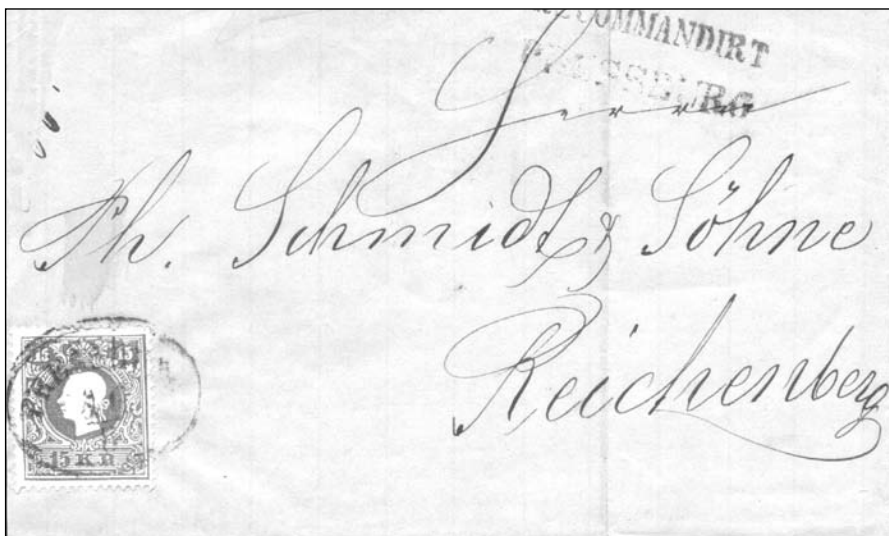 RECOMMANDIRT
PRESSBURG
Herrn
Ph. Schmidt & Söhne
Reichenberg
15 KR